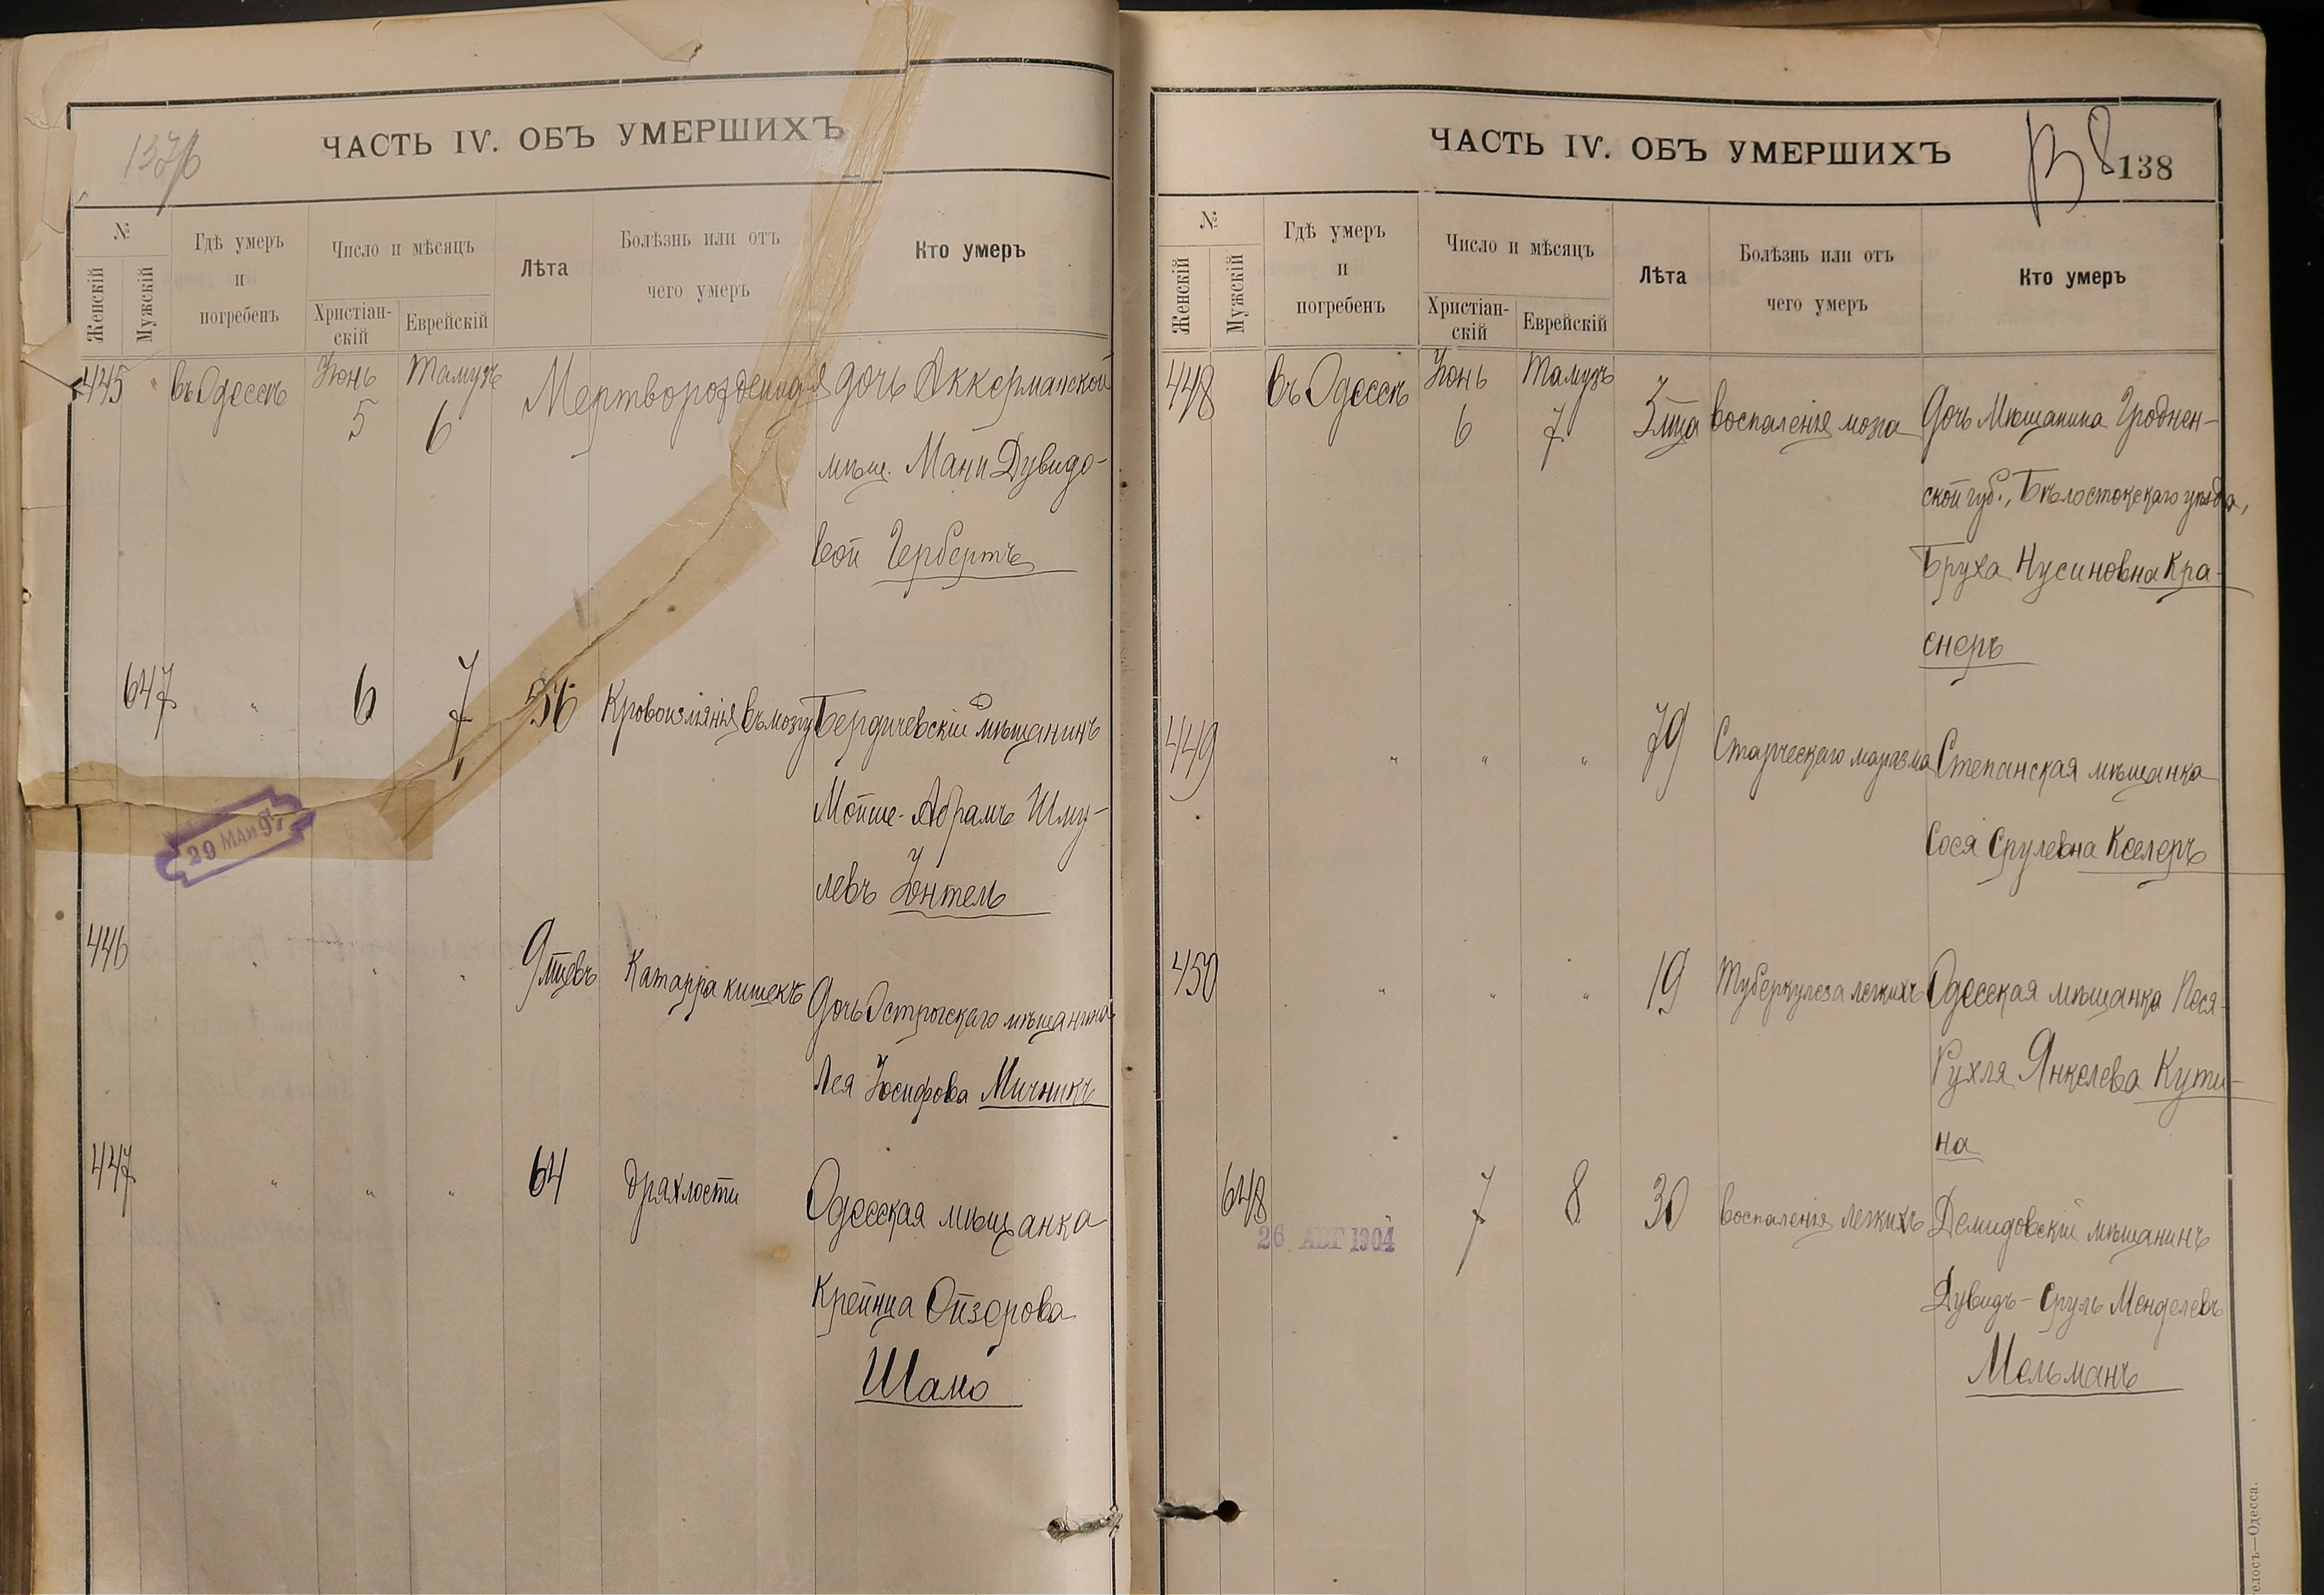 137 б
ЧАСТЬ IV. ОБЪ УМЕРШИХЪ
№
Женскій
Мужскій
Гдѣ умеръ
и
погребенъ
Число и мѣсяцъ
Христіан-
скій
Еврейскій
Лѣта
Болѣзнь или отъ
чего умеръ
Кто умеръ
445 въ Одессѣ Іюнь Тамузъ Мертворожденная дочь Аккерманской
5 6
мѣщ. Мани Дувидо-
вой Гербертъ
647 " 6 7 56 Кровоизліянія въ мозгу Бердичевскій мѣщанинъ
Мойше-Абрамъ Шму-
левъ Юнтель
29 МАЙ 9
446 " " " 9 мцевъ Катарра кишекъ Дочь Острогскаго мѣщанина
Лея Іосифова Мичникъ
447 " " " 64 дряхлости Одесская мѣщанка
Крейнца Ойзерова
Шамо
ЧАСТЬ IV. ОБЪ УМЕРШИХЪ
138
138
№
Женскій
Мужскій
Гдѣ умеръ
и
погребенъ
Число и мѣсяцъ
Христіан-
скій
Еврейскій
Лѣта
Болѣзнь или отъ
чего умеръ
Кто умеръ
448 въ Одессѣ Іюнь Тамузъ
6 7 3 мца воспаленія мозга Дочь Мѣщанина Гроднен-
ской губ., Бѣлостокскаго уѣзда,
Бруха Нусиновна Кра-
снеръ
449 " " " 79 Старческаго маразма Степанская мѣщанка
Сося Срулевна Кселеръ
450 " " " 19 Туберкулеза легкихъ Одесская мѣщанка Песя-
Рухля Янкелева Кути-
на
648 " 7 8 30 воспаленія легкихъ Демидовскій мѣщанинъ
26 АВГ 1904
Дувидъ-Сруль Менделевъ
Мельманъ
Одесса.